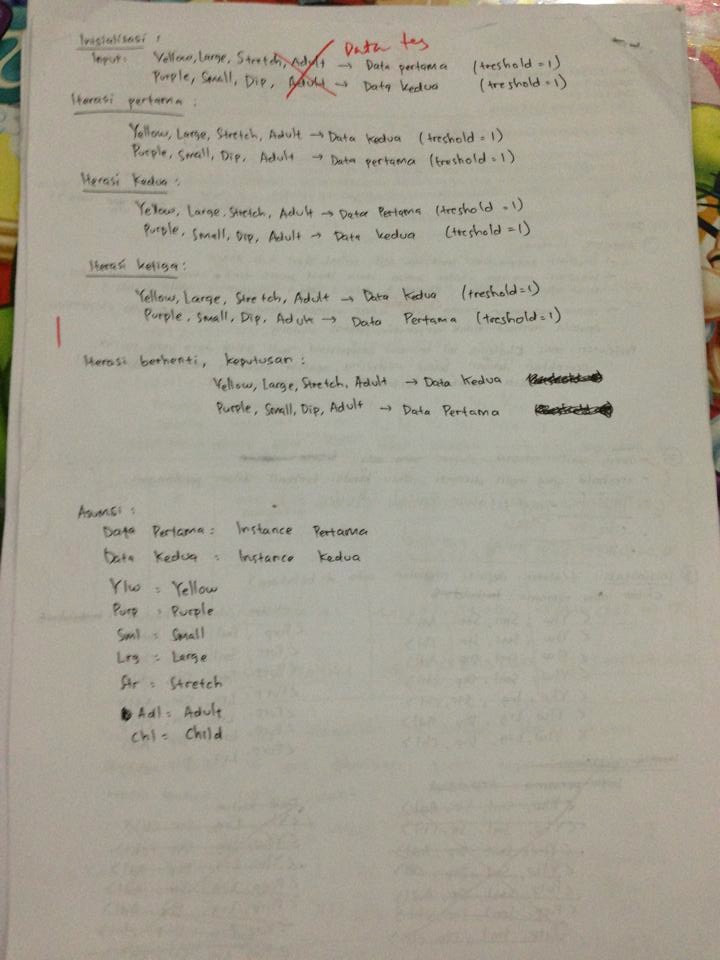 Inisialisasi :
Data tes
Input: Yellow, Large, Stretch, Adult → Data pertama (treshold = 1)
Purple, Small, Dip, Adult → Data kedua (treshold = 1)
Iterasi pertama :
Yellow, Large, Stretch, Adult → Data kedua (treshold = 1)
Purple, Small, Dip, Adult → Data pertama (treshold = 1)
Iterasi Kedua :
Yellow, Large, Stretch, Adult → Data Pertama (treshold = 1)
Purple, Small, Dip, Adult → Data kedua (treshold = 1)
Iterasi ketiga :
Yellow, Large, Stretch, Adult → Data Kedua (treshold = 1)
Purple, Small, Dip, Adult → Data Pertama (treshold = 1)
Iterasi berhenti, keputusan :
Yellow, Large, Stretch, Adult → Data Kedua
Purple, Small, Dip, Adult → Data Pertama
Asumsi :
Data Pertama = Instance Pertama
Data Kedua = Instance Kedua
Ylw = Yellow
Purp = Purple
Sml = Small
Lrg = Large
Str = Stretch
Adl = Adult
Chl = Child